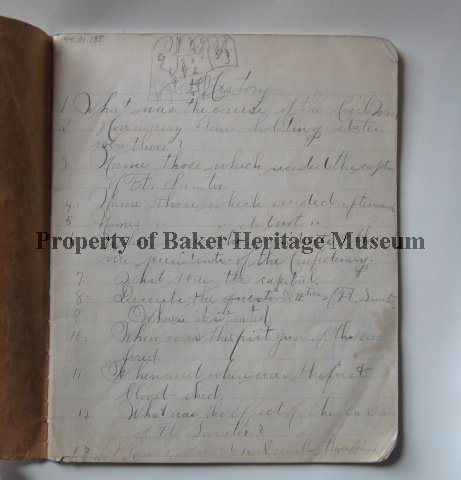 94.01.185
History
1. What was the cause of the Civil War
2. How many slave holding states
were there?
3. Name those which seceded the capture
of Ft. Sumter
4. Name those which seceded afterwards
5. Names " " did not "
Property of Baker Heritage Museum
vice presidents of the Confederacy.
7. What was the capital.
8. Describe the capture of Ft. Sumter
9. Where is it situated
10. When was the first gun of the war
fired.
11. When and where was the first
blood shed.
12. What was the effect of the capture
of Ft. Sumter?
13.